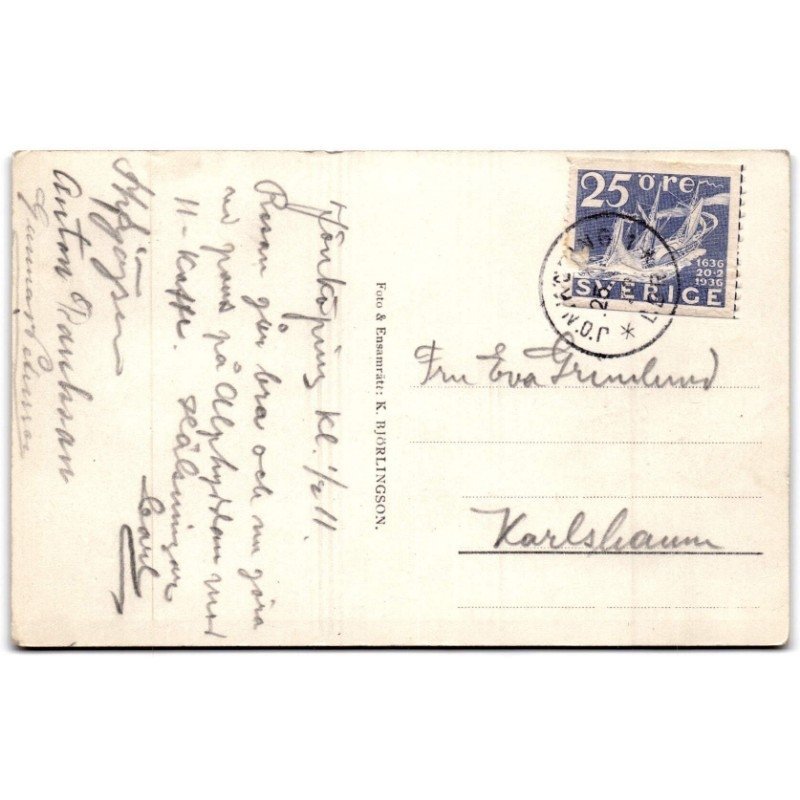 Jönköping kl. ½ 11.
Resan går bra och nu göra
vi paus på Alphyddan med
11-kaffe. Hälsningar
Carl
Anton
Foto & Ensamrätt: K. BJÖRLINGSON.
25 öre
1636
20·2
1936
SVERIGE
JÖNKÖPING 1
25
Fru Eva Grunlund
Karlshamn